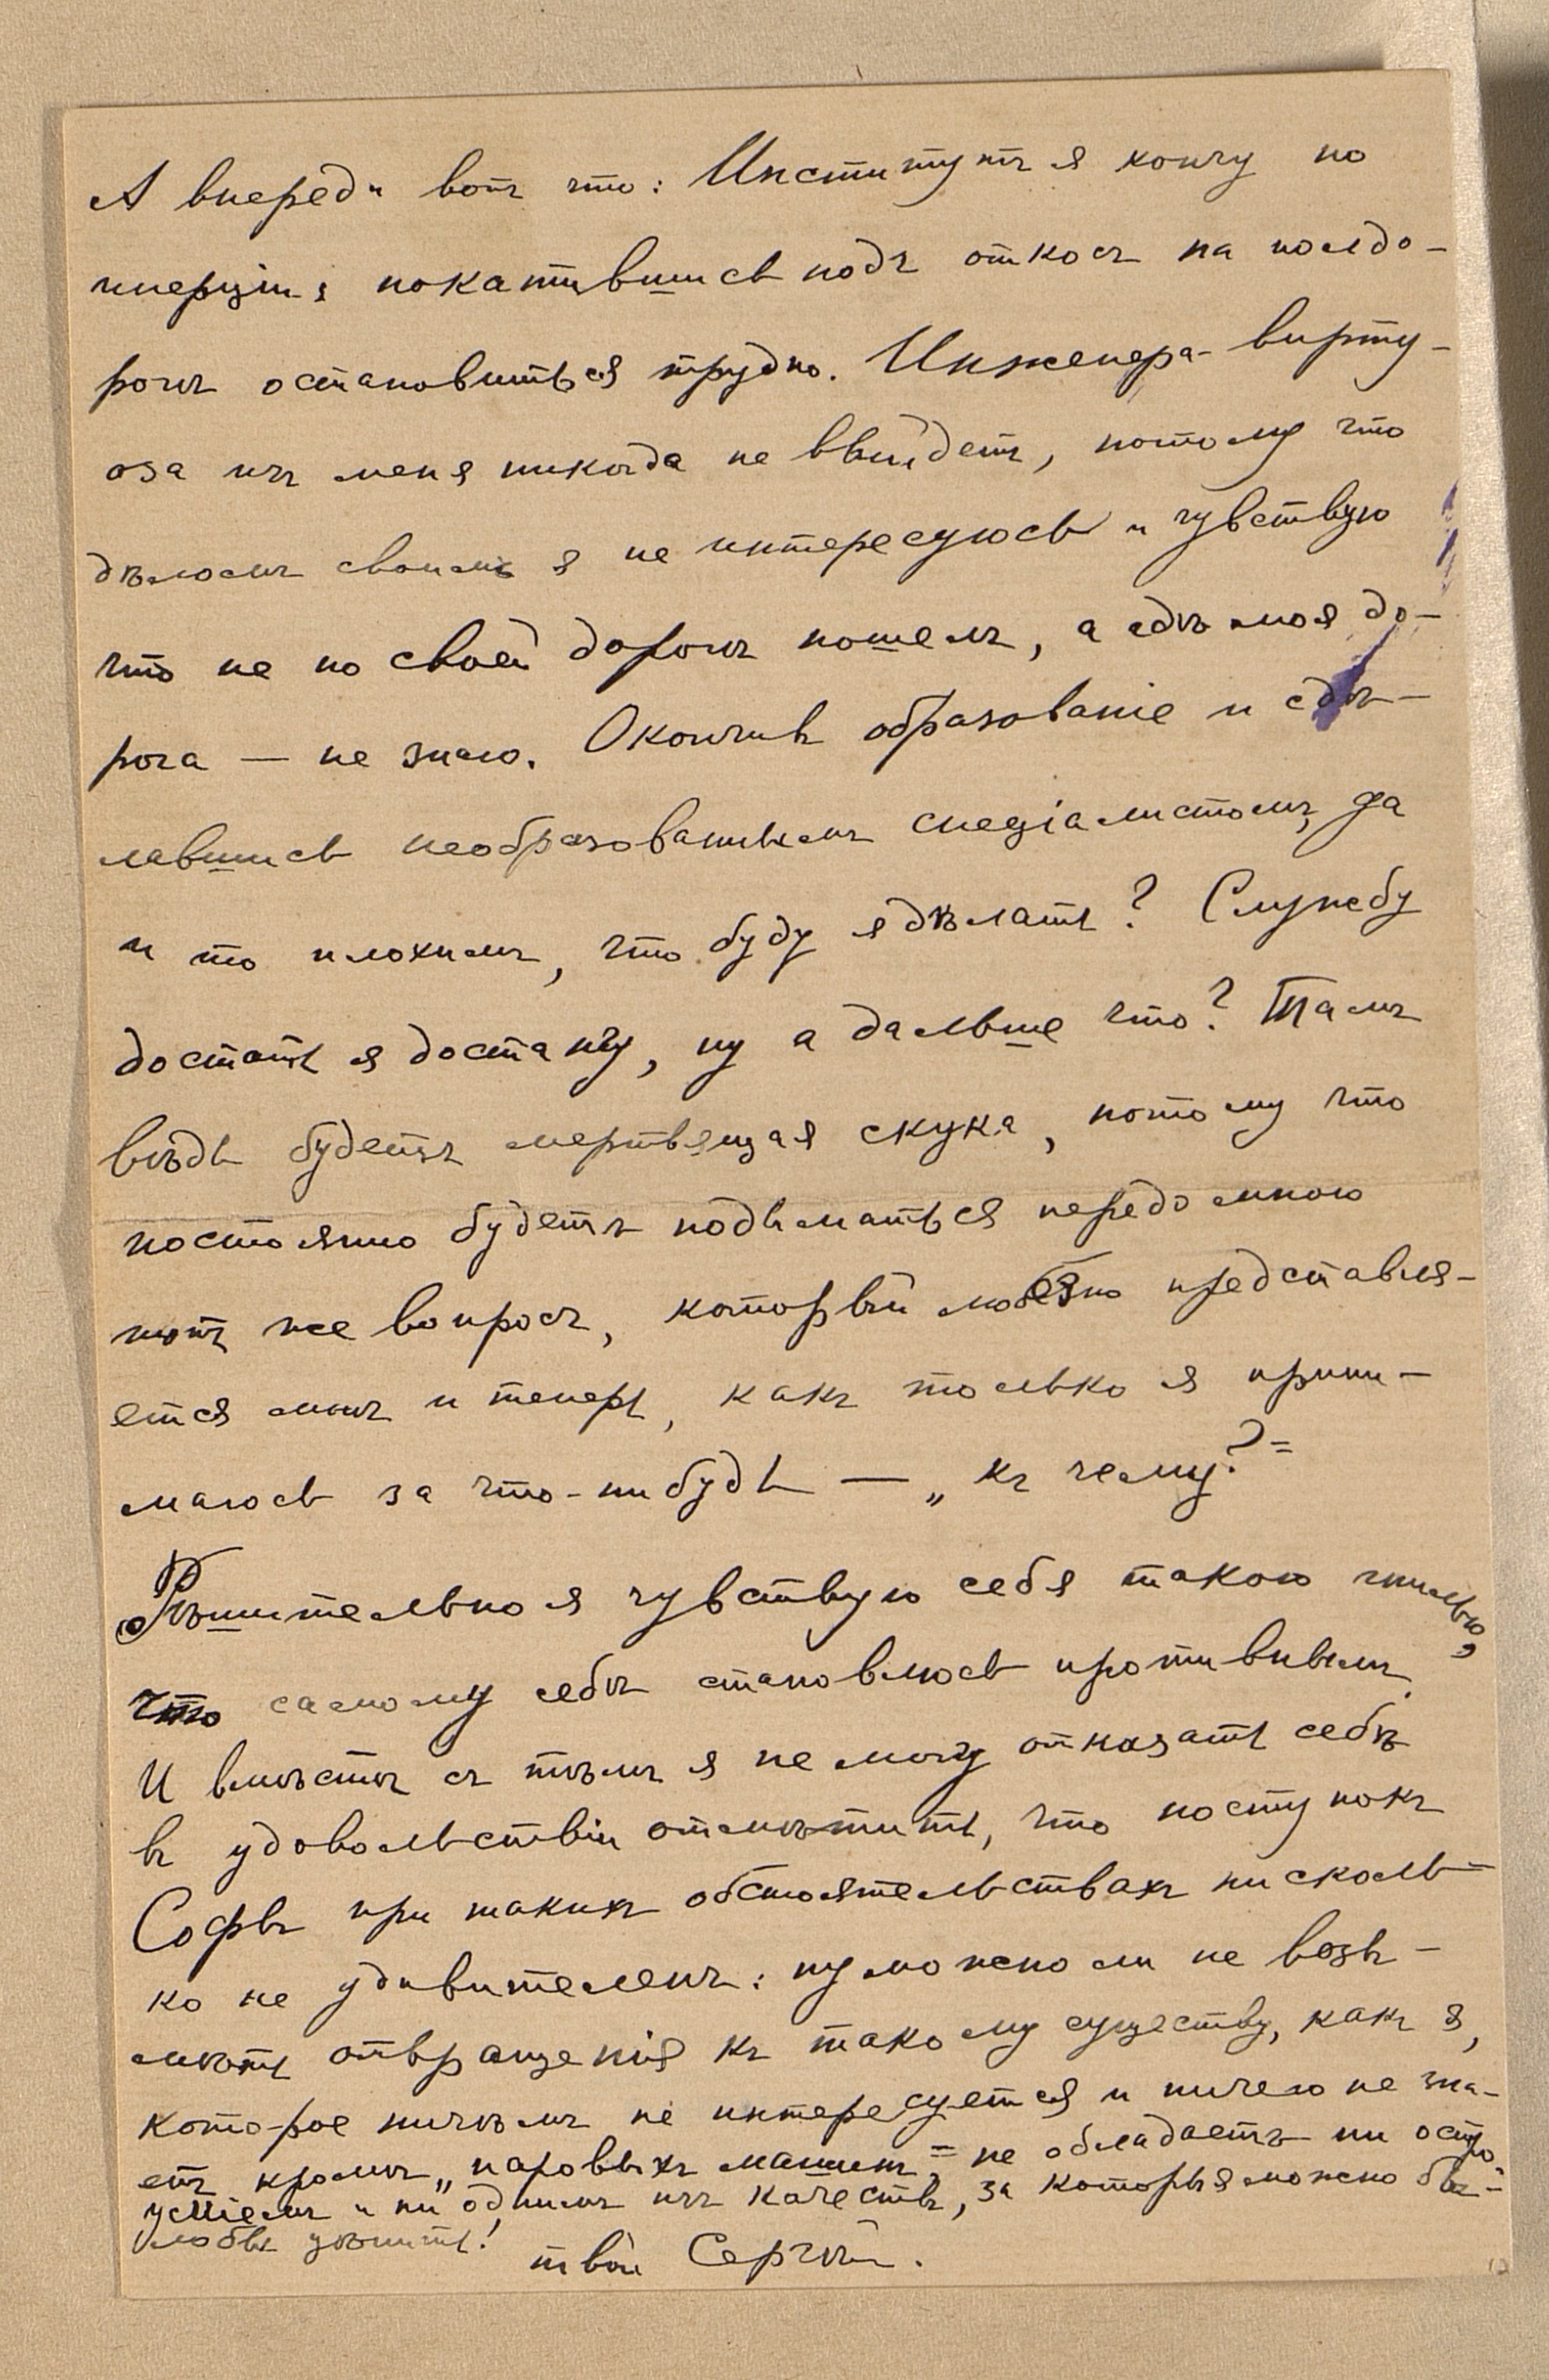 А впереди вотъ что: Институтъ я кончу по
инерціи, покатившись подъ откосъ на полдо-
рогѣ остановиться трудно. Инженера-вирту-
оза изъ меня никогда не выйдетъ, потому что
дѣломъ своимъ я не интересуюсь и чувствую
что не по своей дорогѣ пошелъ, а гдѣ моя до-
рога — не знаю. Окончивъ образованіе и сдѣ-
лавшись необразованнымъ спеціалистомъ, да
и то плохимъ, что буду я дѣлать? Службу
достать я достану, ну а дальше что? Тамъ
вѣдь будетъ мертвящая скука, потому что
постоянно будетъ подыматься передо мною
тотъ же вопросъ, который любезно представля-
ется мнѣ и теперь, какъ только я прини-
маюсь за что-нибудь — „къ чему?"
Рѣшительно я чувствую себя такою гнилью,
что самому себѣ становлюсь противнымъ.
И вмѣстѣ съ тѣмъ я не могу отказать себѣ
въ удовольствіи отмѣтить, что поступокъ
Софы при такихъ обстоятельствахъ нисколь-
ко не удивителенъ: ну можно ли не возы-
мѣть отвращенія къ такому существу, какъ я,
которое ничѣмъ не интересуется и ничего не зна-
етъ кромѣ „паровыхъ машинъ", не обладаетъ ни остро-
уміемъ и ни однимъ изъ качествъ, за которыя можно бы
любви удѣлить!
твой Сергѣй.